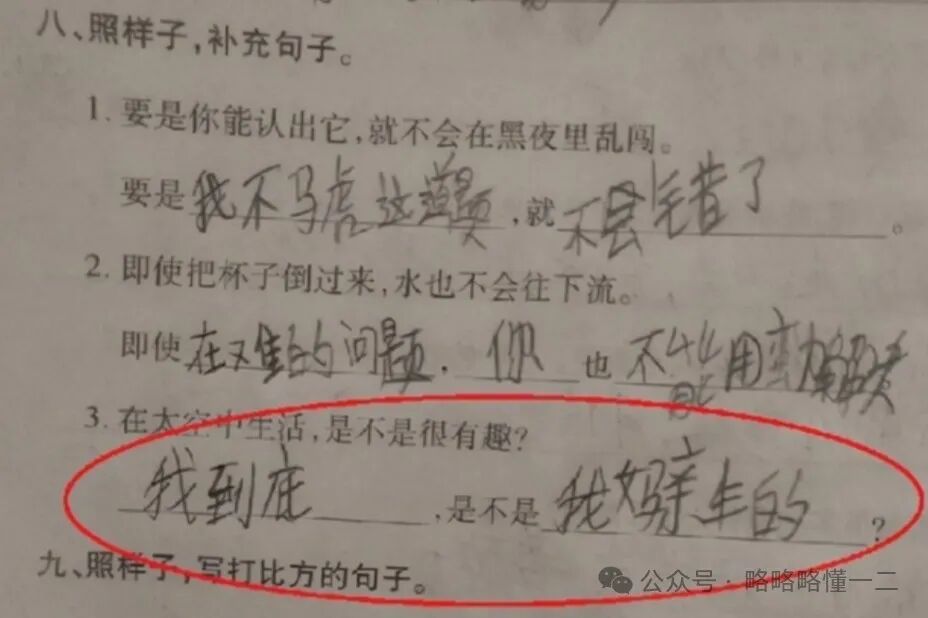 八、照样子,补充句子。
1. 要是你能认出它,就不会在黑夜里乱闯。
要是我不马虎这道题,就不会错了。
2. 即使把杯子倒过来,水也不会往下流。
即使在难的问题,你也不能用蛮力解决
3. 在太空中生活,是不是很有趣?
我到底,是不是我妈亲生的?
九、照样子,写打比方的句子。
公众号·略略略懂一二